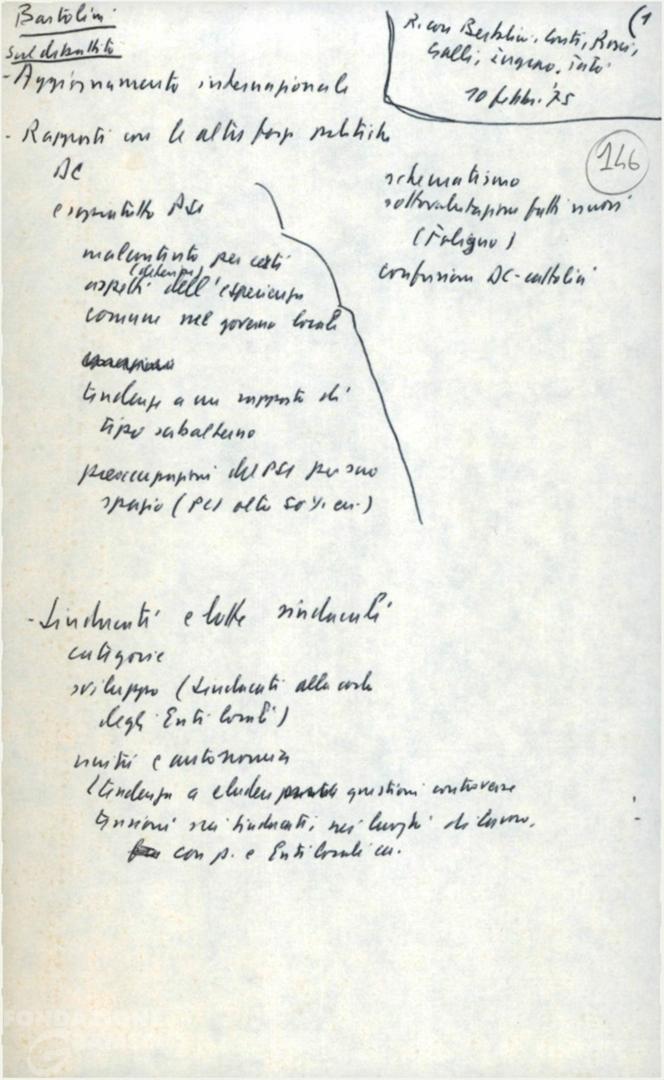 Bartolini
sul dibattito
- Aggiornamento internazionale
(1
R. con Conti, Rossi,
Galli, Ingrao,
10 febbr. '75
146
- Rapporti con le altre forze politiche
DC
e soprattutto PSI
malcontento per certi
aspetti dell'esperienza
comune nel governo locale
tendenza a un rapporto di
tipo subalterno
preoccupazioni del PSI per suo
spazio (PCI oltre 50%
schematismo
sottovalutazione fatti nuovi
(Foligno)
confusione DC-cattolici
- Sindacati e lotte sindacali
categorie
sviluppo (Sindacati alla coda
degli Enti locali)
unità e autonomia
(tendenza a eludere questioni controverse
tensioni nei sindacati, nei luoghi di lavoro,
con p. e Enti locali
FONDAZIONE